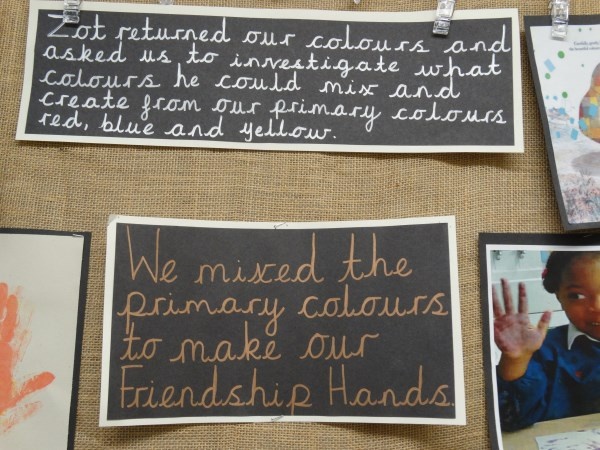 Zot returned our colours and
asked us to investigate what
colours he could mix and
create from our primary colours
red, blue and yellow.
We mixed the
primary colours
to make our
Friendship Hands.